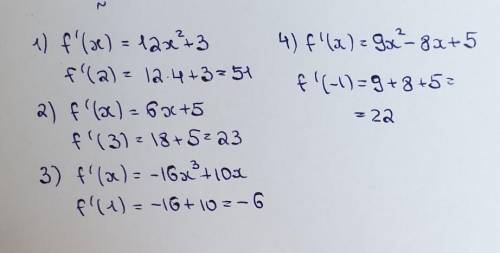 1) f'(x) = 12x²+3
f'(2) = 12·4+3=51
2) f'(x)=6x+5
f'(3)=18+5=23
3) f'(x)=-16x³+10x
f'(1)=-16+10=-6
4) f'(x)=9x²-8x+5
f'(-1)=9+8+5=
=22